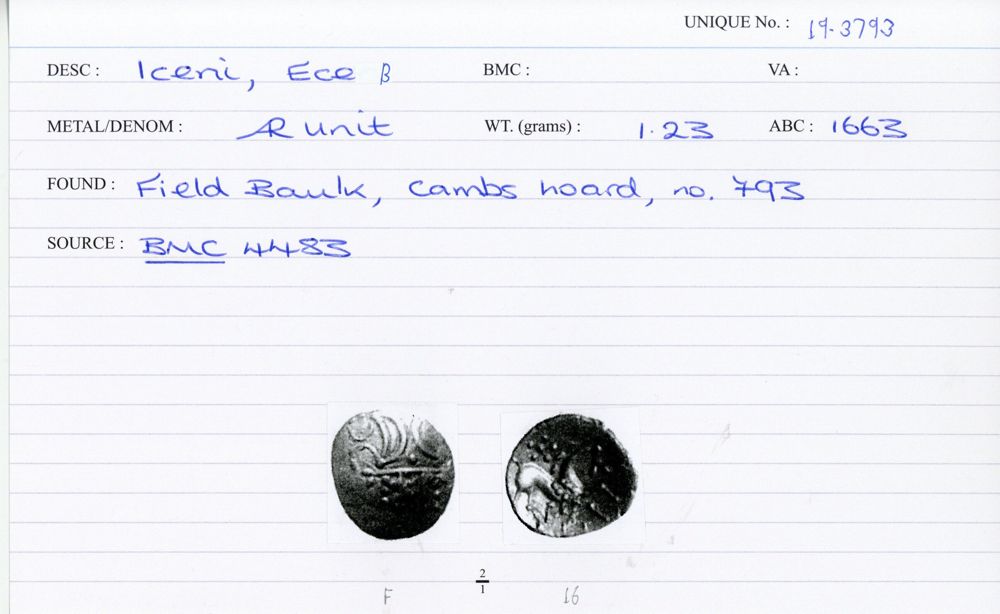 UNIQUE No. : 19-3793
DESC : Iceni, Ece β BMC : VA :
METAL/DENOM : AR unit WT. (grams) : 1.23 ABC : 1663
FOUND : Field Baulk, Cambs hoard, no. 793
SOURCE : BMC 4483
2
1
F 16